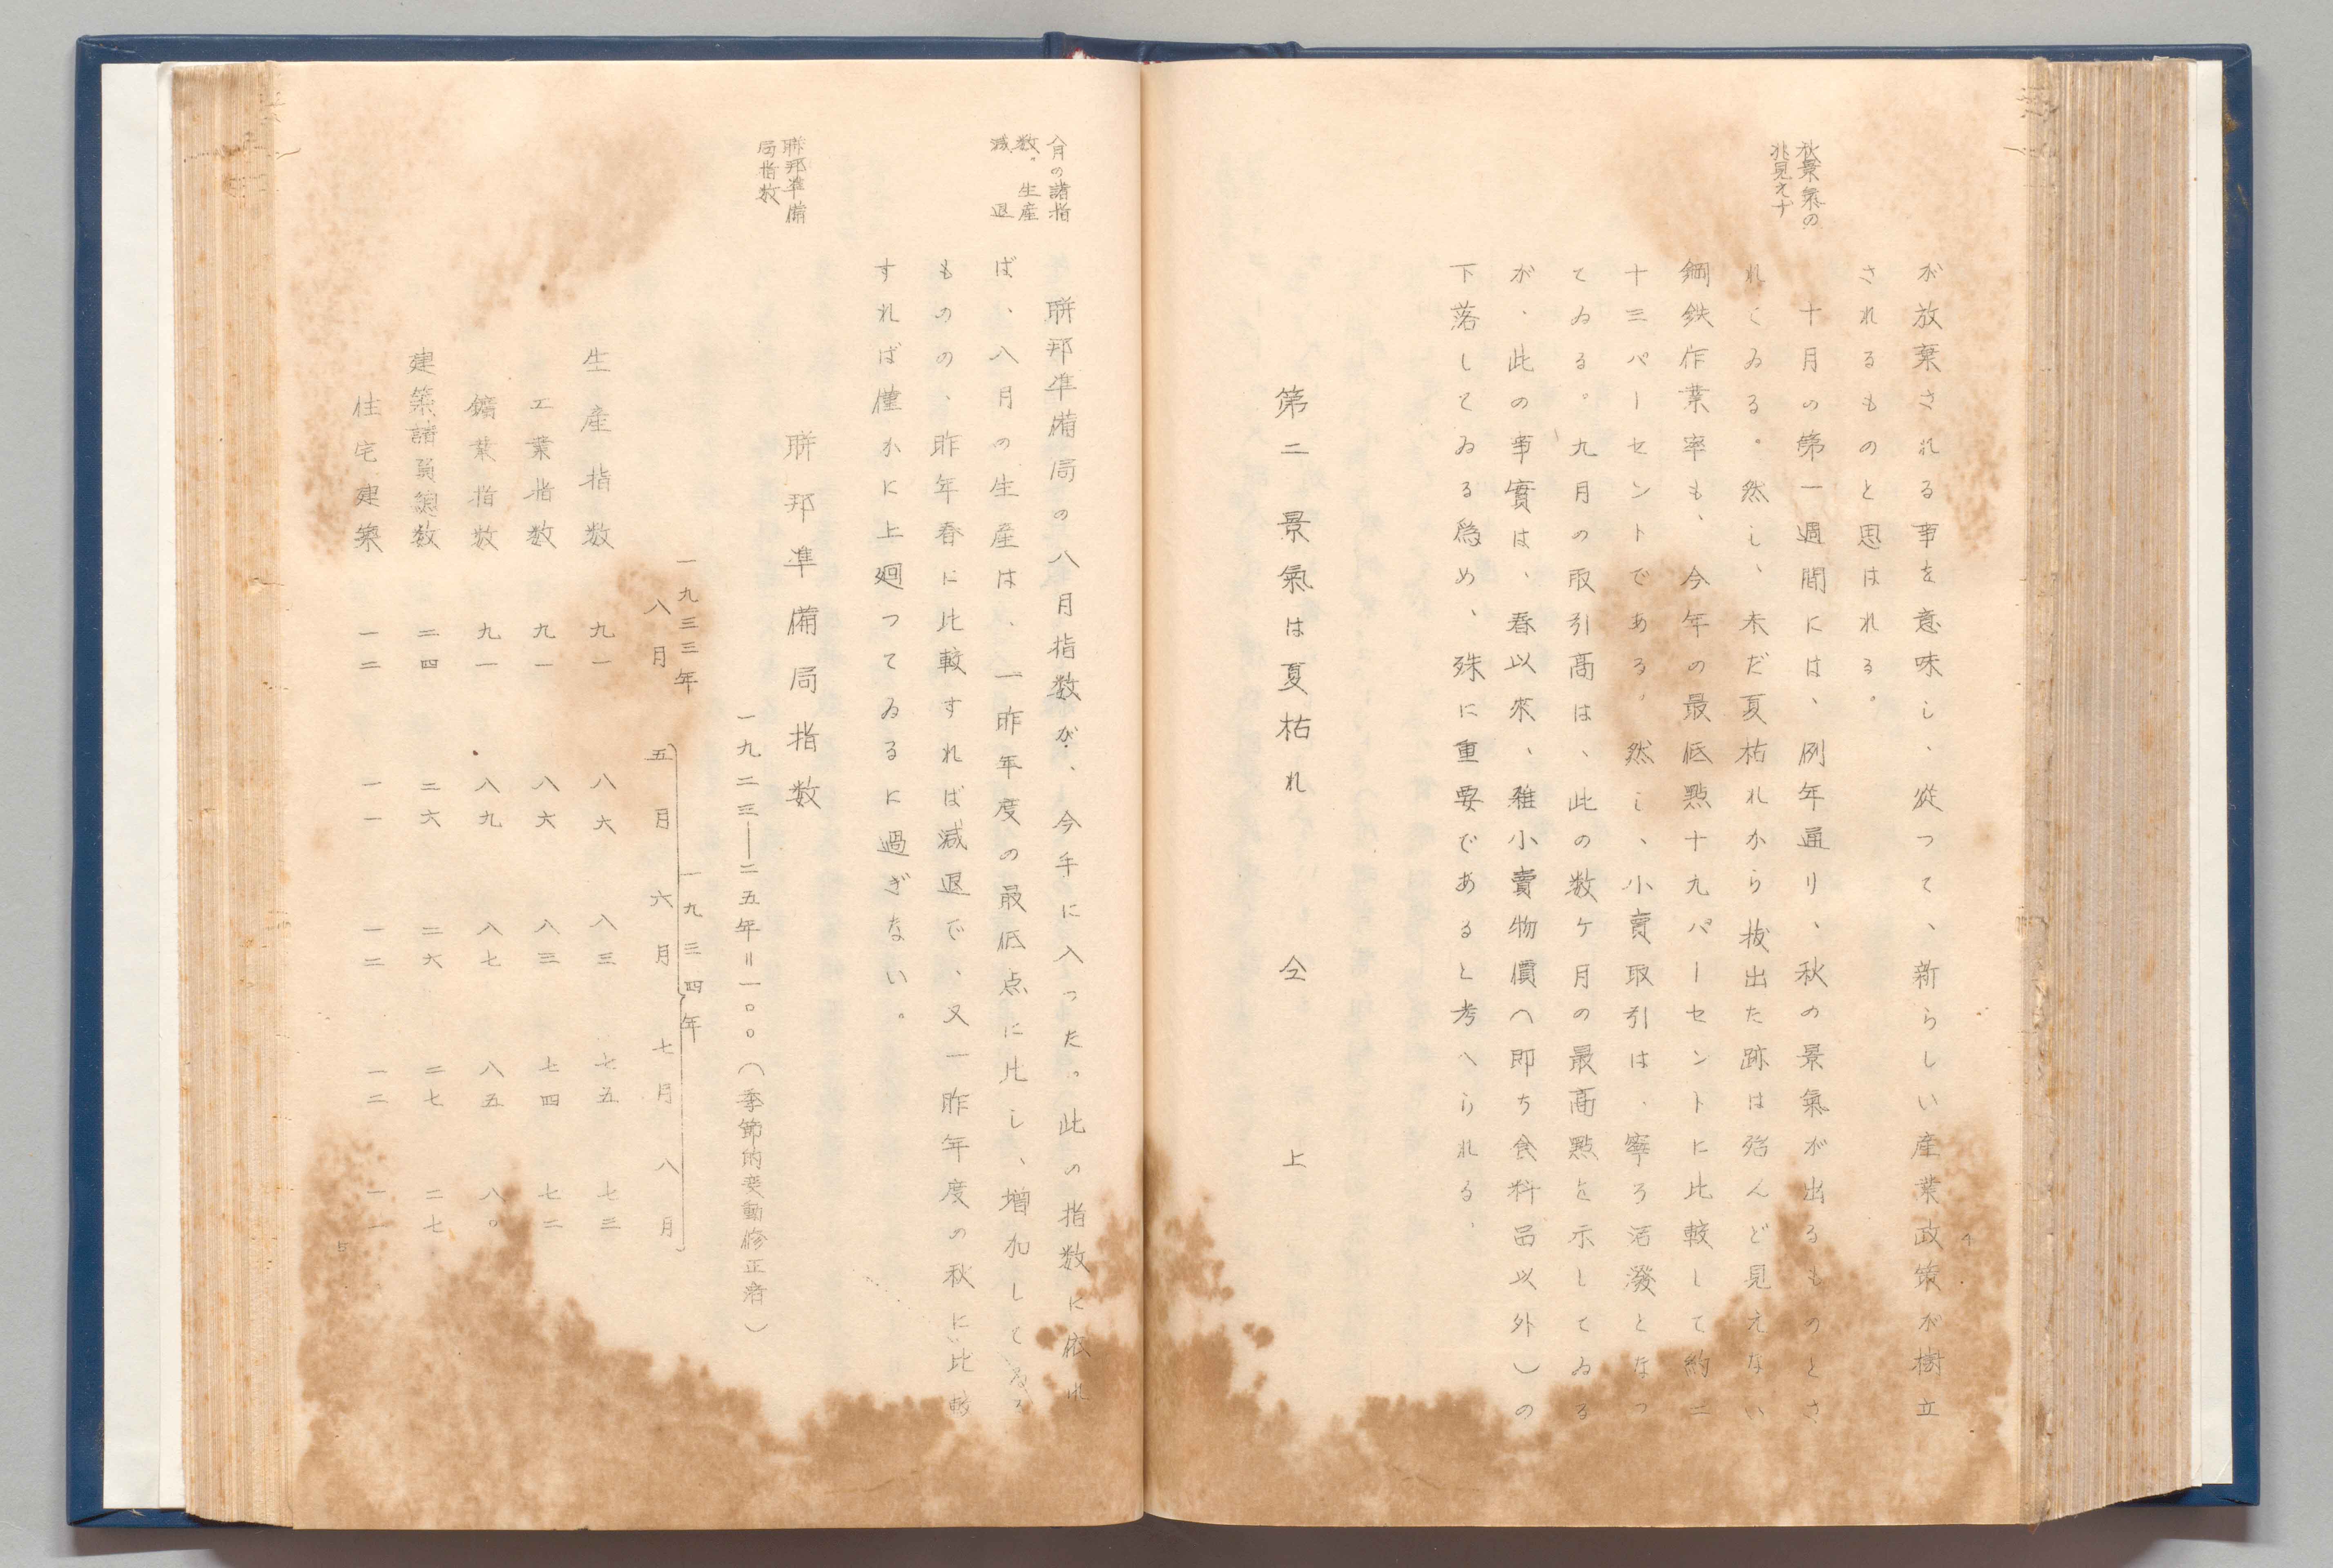 秋景氣の
兆見えず
が放棄される事を意味し、從つて、新らしい産業政策が樹立
されるものと思はれる。
十月の第一週間には、例年通り、秋の景氣が出るものとさ
れてゐる。然し、未だ夏枯れから拔出た跡は殆んど見えない
鋼鉄作業率も、今年の最低點十九パーセントに比較して約二
十三パーセントである。然し、小賣取引は、寧ろ活潑となつ
てゐる。九月の取引高は、此の数ケ月の最高點を示してゐる
が、此の事實は、春以來、雜小賣物價（即ち食料品以外）の
下落してゐる爲め、殊に重要であると考へられる、
4
第二 景氣は夏枯れ 仝 上
八月の諸指
数。生産
減退
聯邦準備局の八月指数が、今手に入つた。此の指数に依れ
ば、八月の生産は、一昨年度の最低点に比し、増加してゐる
ものの、昨年春に比較すれば減退で、又一昨年度の秋に比較
すれば僅かに上廻つてゐるに過ぎない。
聯邦準備
局指数
聯邦準備局指数
一九二三――二五年＝一〇〇（季節的変動修正濟）
一九三三年 一九三四年
八月 五月 六月 七月 八月
生産指数 九一 八六 八三 七五 七三
工業指数 九一 八六 八三 七四 七二
鑛業指数 九一 八九 八七 八五 八〇
建築請負總数 二四 二六 二六 二七 二七
住宅建築 一二 一一 一二 一二 一一
5